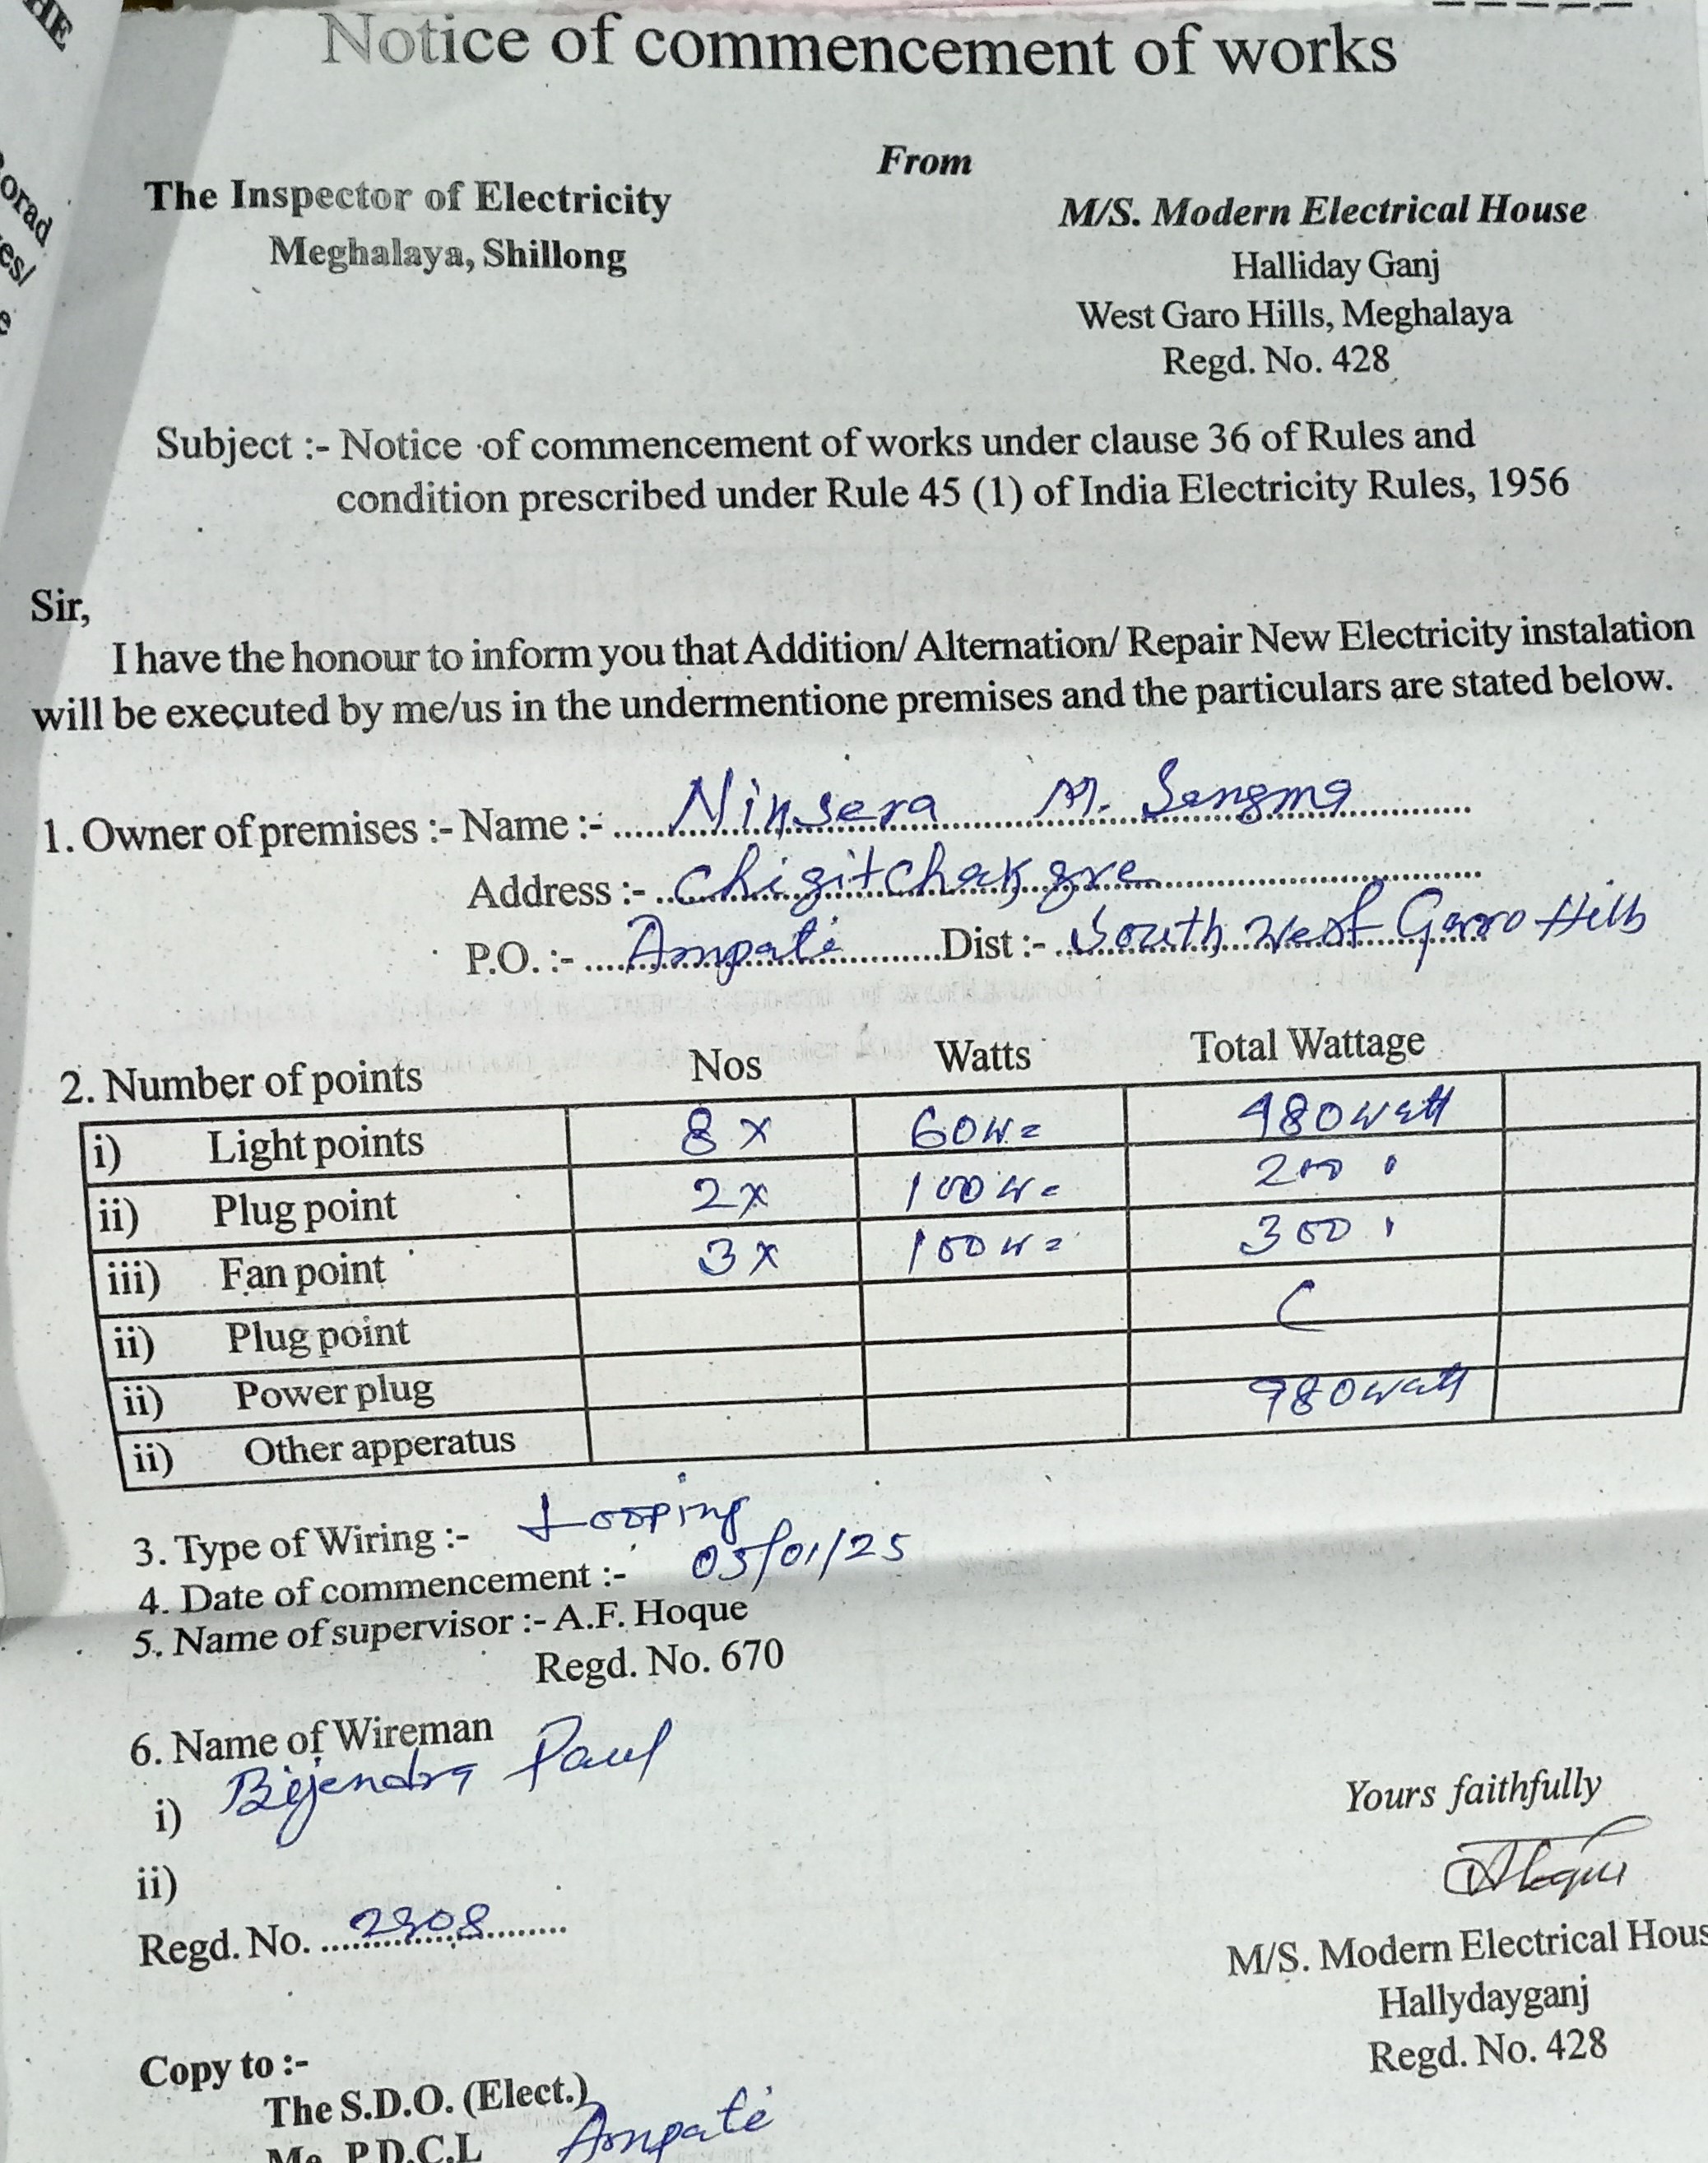 HE
orad
es/
e
Notice of commencement of works
From
The Inspector of Electricity
Meghalaya, Shillong
M/S. Modern Electrical House
Halliday Ganj
West Garo Hills, Meghalaya
Regd. No. 428
Subject :- Notice of commencement of works under clause 36 of Rules and
condition prescribed under Rule 45 (1) of India Electricity Rules, 1956
Sir,
I have the honour to inform you that Addition/ Alternation/ Repair New Electricity instalation
will be executed by me/us in the undermentione premises and the particulars are stated below.
1. Owner of premises :- Name :- Ninsera M. Sangma
Address :- Chigitchakgre
P.O. :- Ampati Dist :- South West Garo Hills
2. Number of points Nos Watts Total Wattage
i) Light points 8 x 60w= 480 watt
ii) Plug point 2x 100w= 200 "
iii) Fan point 3x 100w= 300 "
ii) Plug point
ii) Power plug 980 watt
ii) Other apperatus
3. Type of Wiring :- Looping
4. Date of commencement :- 05/01/25
5. Name of supervisor :- A.F. Hoque
Regd. No. 670
6. Name of Wireman
i) Bijendra Paul
ii)
Regd. No. 2908
Yours faithfully
AHoque
M/S. Modern Electrical Hous
Hallydayganj
Regd. No. 428
Copy to :-
The S.D.O. (Elect.)
Me. P.D.C.L Ampati